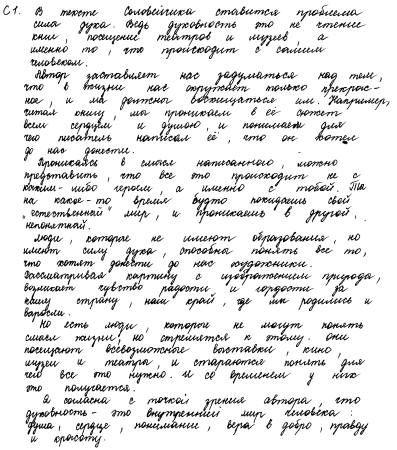 С1. В тексте Соловейчика ставится проблема
сила духа. Ведь духовность это не чтение
книг, посещение театров и музеев, а
именно то, что происходит с самим
человеком.
Автор заставляет нас задуматься над тем,
что в жизни нас окружает только прекрас-
ное, и мы должны восхищаться им. Например,
читая книгу, мы проникаем в её сюжет
всем сердцем и душою, и понимаем для
чего писатель написал её, что он хотел
до нас донести.
Проникаясь в смысл написанного, можно
представить, что все это происходит не с
каким-либо героем, а именно с тобой. Ты
на какое-то время будто покидаешь свой
"естественный" мир, и проникаешь в другой,
непонятный.
Люди, которые не имеют образования, но
имеют силу духа, способны понять все то,
что хотят донести до нас художники.
Рассматривая картину с изображением природы,
возникает чувство радости и гордости за
нашу страну, наш край, где мы родились и
выросли.
Но есть люди, которые не могут понять
смысл жизни, но стремятся к этому. Они
посещают всевозможные выставки, кино,
музеи и театры, и стараются понять для
чего все это нужно. И со временем у них
это получается.
Я согласна с точкой зрения автора, что
духовность - это внутренний мир человека:
душа, сердце, понимание, вера в добро, правду
и красоту.